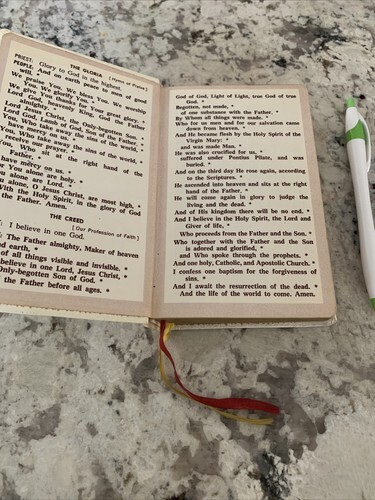 THE GLORIA [Hymn of Praise]
PRIEST: Glory to God in the highest.
PEOPLE: And on earth peace to men of good
will.
We praise You. We bless You. We worship
You. We glorify You. *
We give You thanks for Your great glory. *
Lord God, heavenly King, God the Father
almighty. *
Lord Jesus Christ, the Only-begotten Son. *
Lord God, Lamb of God, Son of the Father. *
You, Who take away the sins of the world,
have mercy on us. *
You, Who take away the sins of the world,
You, Who sit at the right hand of the
Father, *
have mercy on us. *
For You alone are holy. *
You alone are Lord. *
You alone, O Jesus Christ, are most high, *
With the Holy Spirit, in the glory of God
the Father. Amen.
THE CREED
[Our Profession of Faith]
I believe in one God.
The Father almighty, Maker of heaven
and earth, *
of all things visible and invisible. *
believe in one Lord, Jesus Christ, *
Only-begotten Son of God. *
the Father before all ages. *
God of God, Light of Light, true God of true
God. *
Begotten, not made, *
of one substance with the Father. *
By Whom all things were made. *
Who for us men and for our salvation came
down from heaven. *
And He became flesh by the Holy Spirit of the
Virgin Mary: *
and was made Man. *
He was also crucified for us, *
suffered under Pontius Pilate, and was
buried. *
And on the third day He rose again, according
to the Scriptures. *
He ascended into heaven and sits at the right
hand of the Father. *
He will come again in glory to judge the
living and the dead. *
And of His kingdom there will be no end. *
And I believe in the Holy Spirit, the Lord and
Giver of life, *
Who proceeds from the Father and the Son. *
Who together with the Father and the Son
is adored and glorified, *
and Who spoke through the prophets. *
And one holy, Catholic, and Apostolic Church. *
I confess one baptism for the forgiveness of
sins, *
And I await the resurrection of the dead. *
And the life of the world to come. Amen.